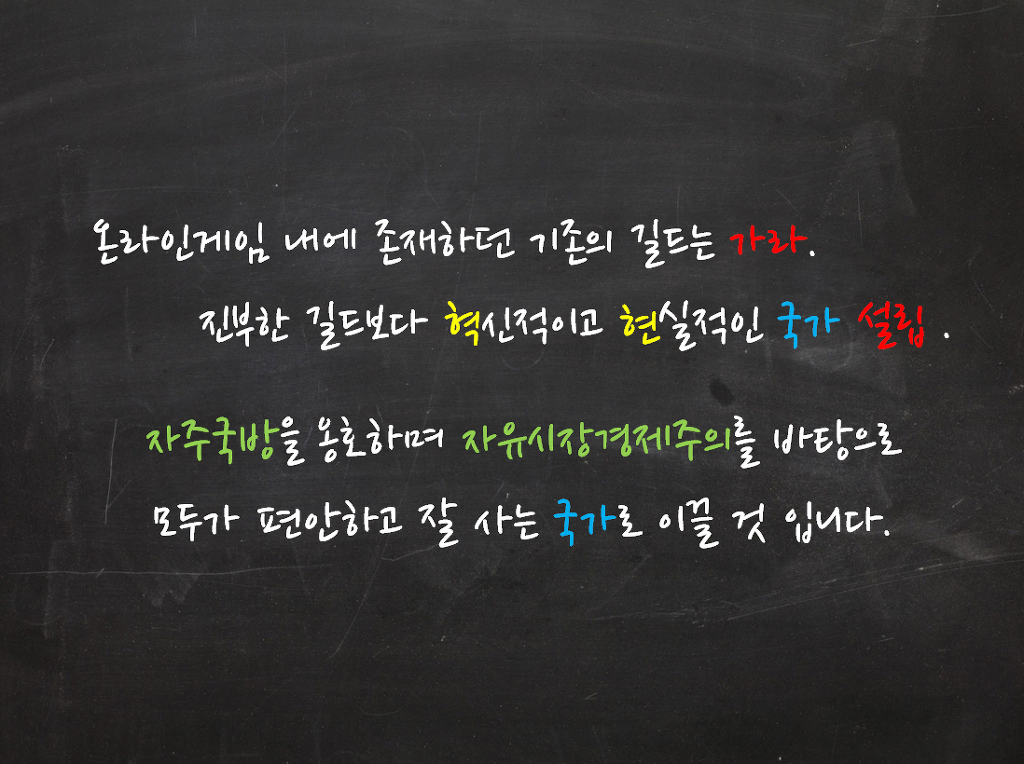 온라인게임 내에 존재하던 기존의 길드는 가라.
진부한 길드보다 혁신적이고 현실적인 국가 설립 .
자주국방을 옹호하며 자유시장경제주의를 바탕으로
모두가 편안하고 잘 사는 국가로 이끌 것 입니다.